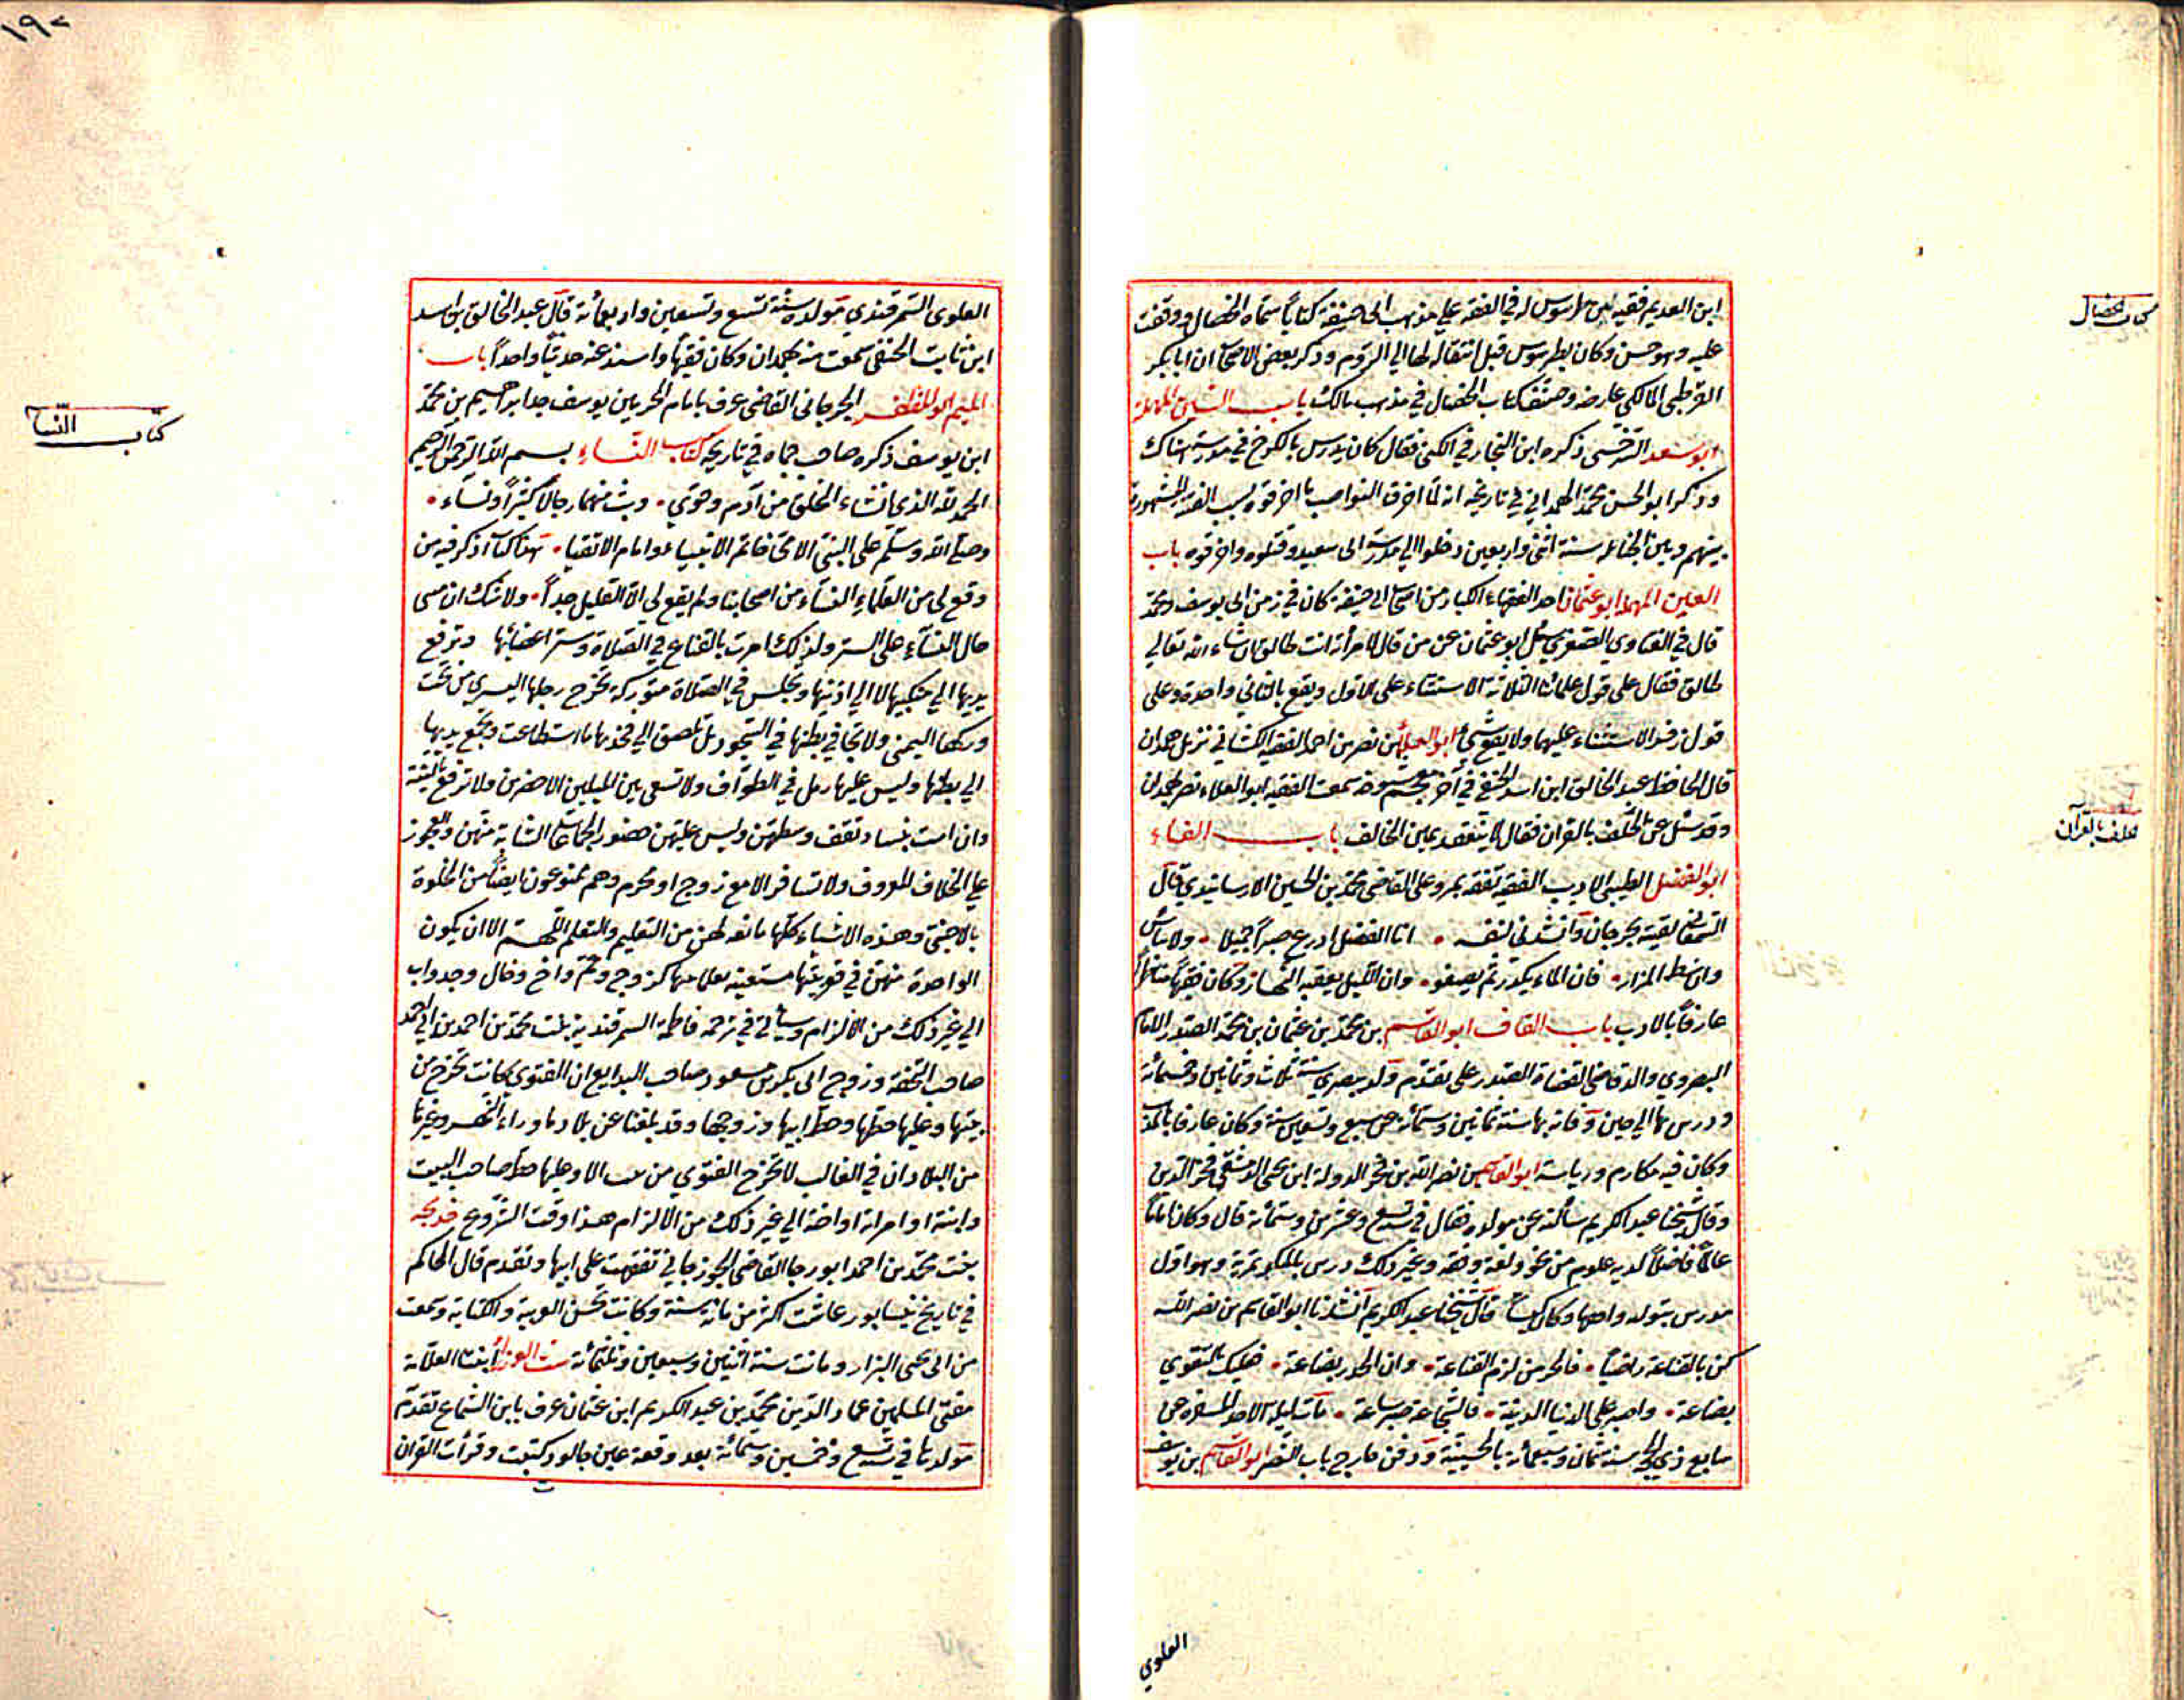 كتاب الخصال
ابن العديم فقيه من طرسوس له في الفقه علي مذهب ابي حنيفة كتاباً سماه الخصال ووقفت
عليه وهو حسن وكان بطرسوس قبل انتقاله لها الي الروم وذكر بعض الاصحاب ان ابا بكر
القرطبي المالكي عارضه وصنف كتاب الخصال في مذهب مالك باب السين المهملة
ابو سعد السرخسي ذكره ابن النجار في الكنى فقال كان يدرس بالكرخ في مدرسة هناك
وذكر ابو الحسن محمد الهمداني في تاريخه انه لما احرق النواصب ما احرقوه بسبب الفتنة المشهورة
بينهم وبين الحنابلة سنة اثني واربعين دخلوا الي مدرسة ابي سعيد وقتلوه واحرقوه باب
العين المهملة ابو عثمان احد الفقهاء الكبار من اصحاب ابي حنيفة كان في زمن ابي يوسف ومحمد
قال في الفتاوي الصغري سئل ابو عثمان عن من قال لامرأته انت طالق ان شاء الله تعالي
طالق فقال علي قول علمائنا الثلاثة الاستثناء علي الاول ويقع بالثاني واحدة وعلي
قول زفر الاستثناء عليهما ولا يقع شئ ابو العلاء بن نصر بن احمد الفقيه الكشاني نزيل همدان
قال الحافظ عبد الخالق ابن اسد الحنفي في آخر معجم شيوخه سمعت الفقيه ابو العلاء نصر بهمدان
وقد سئل عن الحلف بالقران فقال لا يتعقد يمين الحالف باب الفاء
الحلف بالقرآن
ابو الفضل الطيبي الاديب الفقيه تفقه بمرو علي القاضي محمد بن الحسين الارسابندي قال
السمعاني لقيته بجرجان وانشدني لنفسه • انا الفضل ادرع صبراً جميلا • ولا تيأس
وان شط المزار • فان الماء يكدر ثم يصفو • وان الليل يعقبه النهار وكان فقيهاً مناظراً
عارفاً بالادب باب القاف ابو القاسم بن محمد بن عثمان بن محمد الصدر الامام
البصروي والد قاضي القضاة الصدر علي تقدم ولد ببصري سنة ثلاث وثمانين وخمسمائة
ودرس بها الي حين وفاته بها سنة ثمانين وستمائة عن سبع وتسعين سنة وكان عارفا بالمذهب
وكان فيه مكارم ورياسة ابو القاسم بن نصر الله بن فخر الدولة ابن يحيى الدمشقي فخر الدين
وقال شيخنا عبد الكريم سألته عن مولده فقال في تسع وعشرين وستمائة قال وكان اماماً
عالماً فاضلاً لديه علوم من نحو ولغة وفقه وغير ذلك درس بالمنكوتمرية وهو اول
مدرس بتولد واحها وكان كيساً قال شيخنا عبد الكريم انشدنا ابو القاسم بن نصر الله
كن بالقناعة راضياً • فالحر من لزم القناعة • وان الحذر بضاعة • فليك التقوي
بضاعة • واصبر علي الدنيا الدنية • فالشجاعة صبر ساعة • مات ليلة الاحد المسفرة عن
سابع ذي الحجة سنة ثمان وسبعمائة بالحسينية ودفن خارج باب النصر ابو القاسم بن يوسف
العلوي
١٩٧
العلوي السمرقندي مولده سنة تسع وتسعين واربعمائة قال عبد الخالق بن اسد
ابن ثابت الحنفي سمعت منه بهمدان وكان فقيهاً واسند عنه حديثاً واحداً باب
الميم ابو المظفر الجرجاني القاضي عرف بامام الحرمين يوسف جد ابراهيم بن محمد
ابن يوسف ذكره صاحب حماه في تاريخه كتاب النساء بسم الله الرحمن الرحيم
كتاب النساء
الحمد لله الذي انشاء الخلق من آدم وحوي • وبث منهما رجالاً كثيراً ونساء •
وصلى الله وسلم علي النبي الامي خاتم الانبياء وامام الاتقيا • هذا كتاب اذكر فيه من
وقع لي من العلماء النساء من اصحابنا ولم يقع لي الا القليل جداً • ولا شك ان مبني
حال النساء علي الستر ولذلك امرت بالقناع في الصلاة وستر اعضائها وترفع
يديها الي منكبيها لا الي اذنيها وتجلس في الصلاة متوركة تخرج رجلها اليسري من تحت
وركها اليمني ولا تجافي بطنها في السجود بل تلصق الي فخذيها ما استطاعت وتجمع يديها
الي بطنها وليس عليها رمل في الطواف ولا تسعي بين الميلين الاخضرين ولا ترفع بالتلبية
وان امت بنساء تقف وسطهن وليس عليهن حضور الجماعات الشابة منهن والعجوز
علي الخلاف المعروف ولا تسافر الا مع زوج او محرم وهم ممنوعون ايضاً من الخلوة
بالاجنبي وهذه الاشياء كلها مانعة لهن من التعليم والتعلم اللهم الا ان يكون
الواحدة منهن في قوبيتها مستعينة بعلامها كزوج وعم واخ وخال وجد واب
الي غير ذلك من الالزام وسيأتي في ترجمة فاطمة السمرقندية بنت محمد بن احمد بن ابي احمد
صاحب التحفة وزوج ابي بكر بن مسعود صاحب البدايع ان الفتوي كانت تخرج من
بيتها وعليها خطها وخط ابيها وزوجها وقد بلغنا عن بلاد ما وراء النهر وغيرها
من البلاد ان في الغالب لا تخرج الفتوي من بيت الا وعليها خط صاحب البيت
وابنته او امرأته او اخته الي غير ذلك من الالزام هذا وقت الشروع خديجة
بنت محمد بن احمد ابو رجا القاضي الجوزجاني تفقهت علي ابيها وتقدم قال الحاكم
في تاريخ نيسابور عاشت اكثر من مائة سنة وكانت تحسن العربية والكتابة وسمعت
من ابي يحيى البزار وماتت سنة اثنين وسبعين وثلثمائة ست الوزراء بنت العلامة
مفتي المسلمين عماد الدين محمد بن عبد الكريم ابن عثمان عرف بابن الشماع تقدم
مولدها في تسع وخمسين وستمائة بعد وقعة عين جالود كتبت وقرأت القران